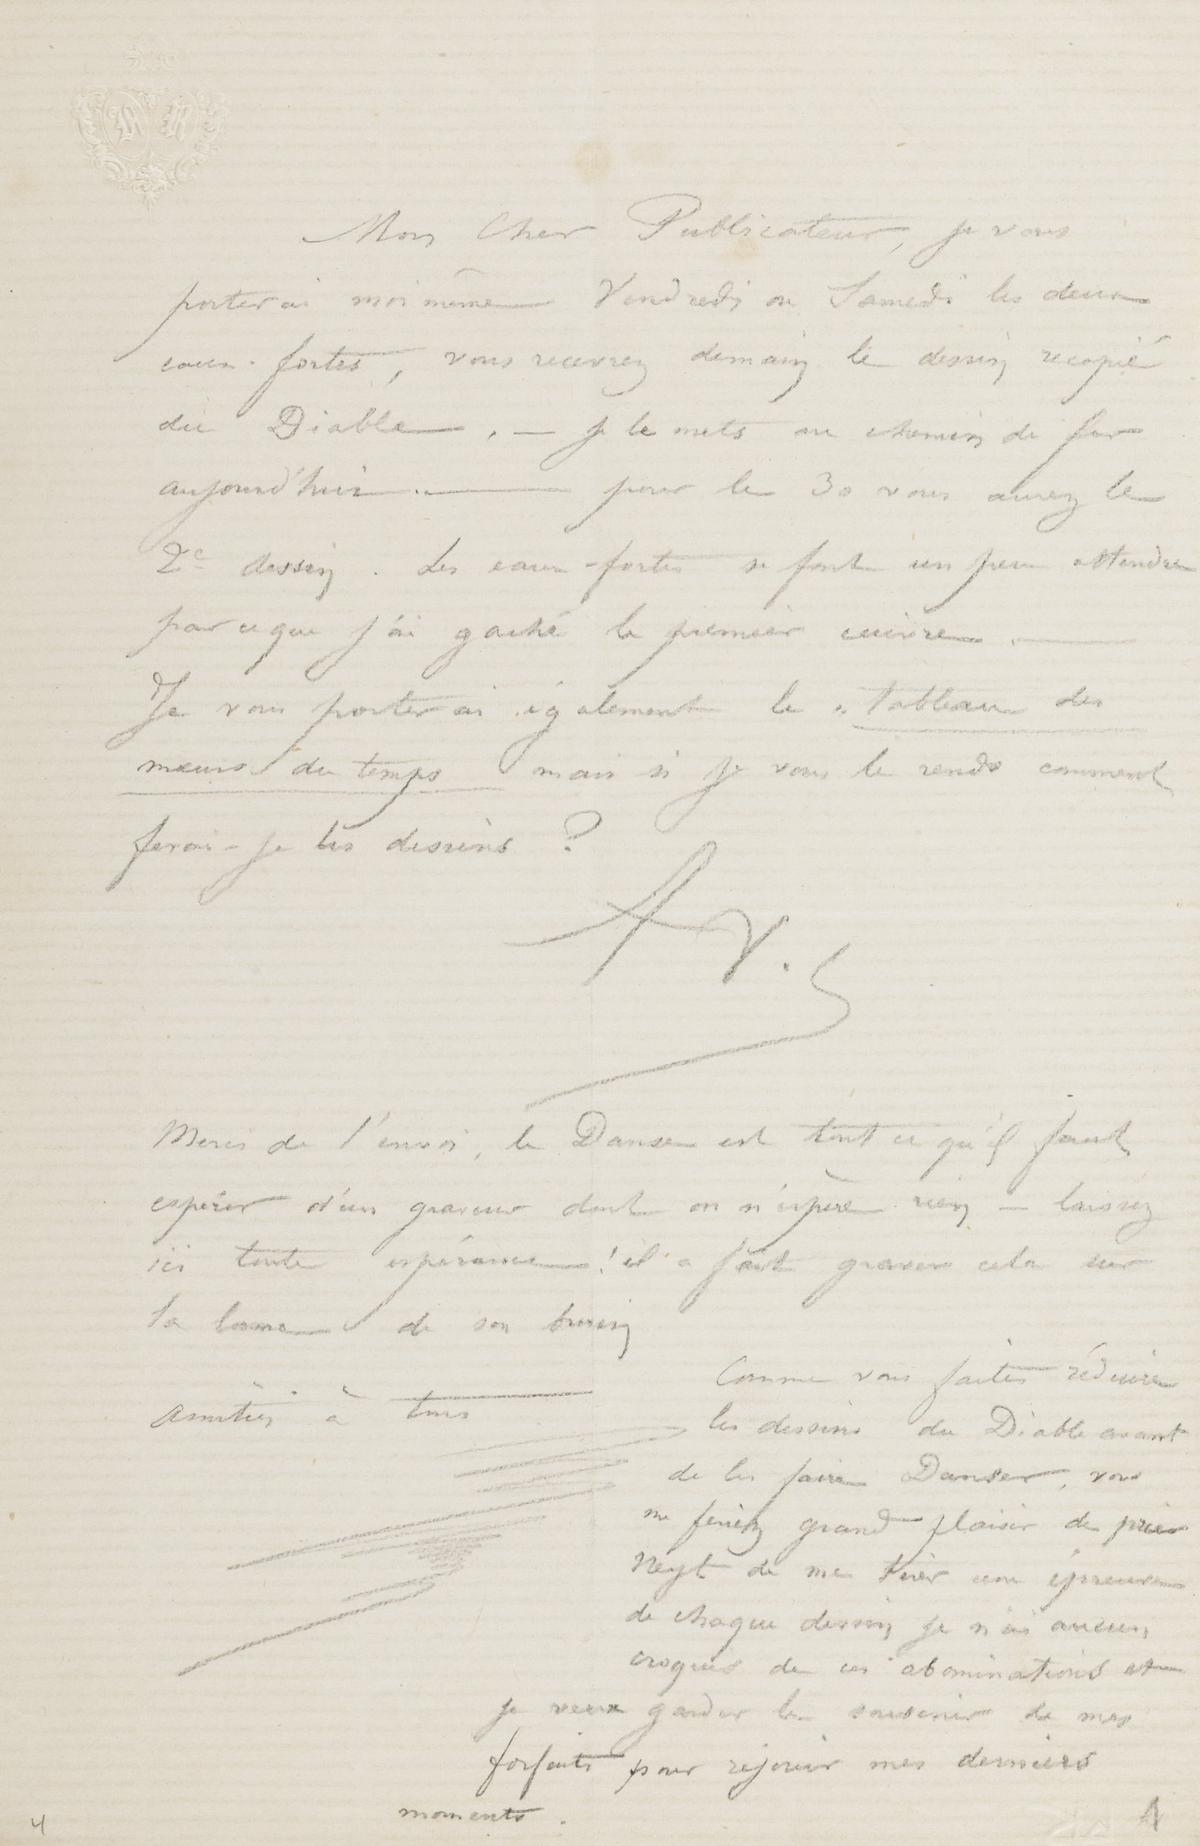 Mon Cher Publicateur, je vous
porterai moi même Vendredi ou Samedi les deux
eaux-fortes, vous recevrez demain le dessin recopié
du Diable. — je le mets au chemin de fer
aujourd'hui. — pour le 30 vous aurez le
2e dessin. Les eaux-fortes se font un peu attendre
parceque j'ai gaché le premier cuivre. —
Je vous porterai également le "tableau des
mœurs du temps mais si je vous le rends comment
ferai-je les dessins ?
Merci de l'envoi, la Danse est tout ce qu'il faut
espérer d'un graveur dont on n'espère rien — laissez
ici toute espérance ! il a fait graver cela sur
la lame de son burin
Amitiés à tous
Comme vous faites réduire
les dessins du Diable avant
de les faire Danser, vous
me feriez grand plaisir de prier
Neyt de me tirer une épreuve
de chaque dessin je n'ai aucun
croquis de ces abominations et
je veux garder le souvenir de mes
forfaits pour réjouir mes derniers
moments.
4
1